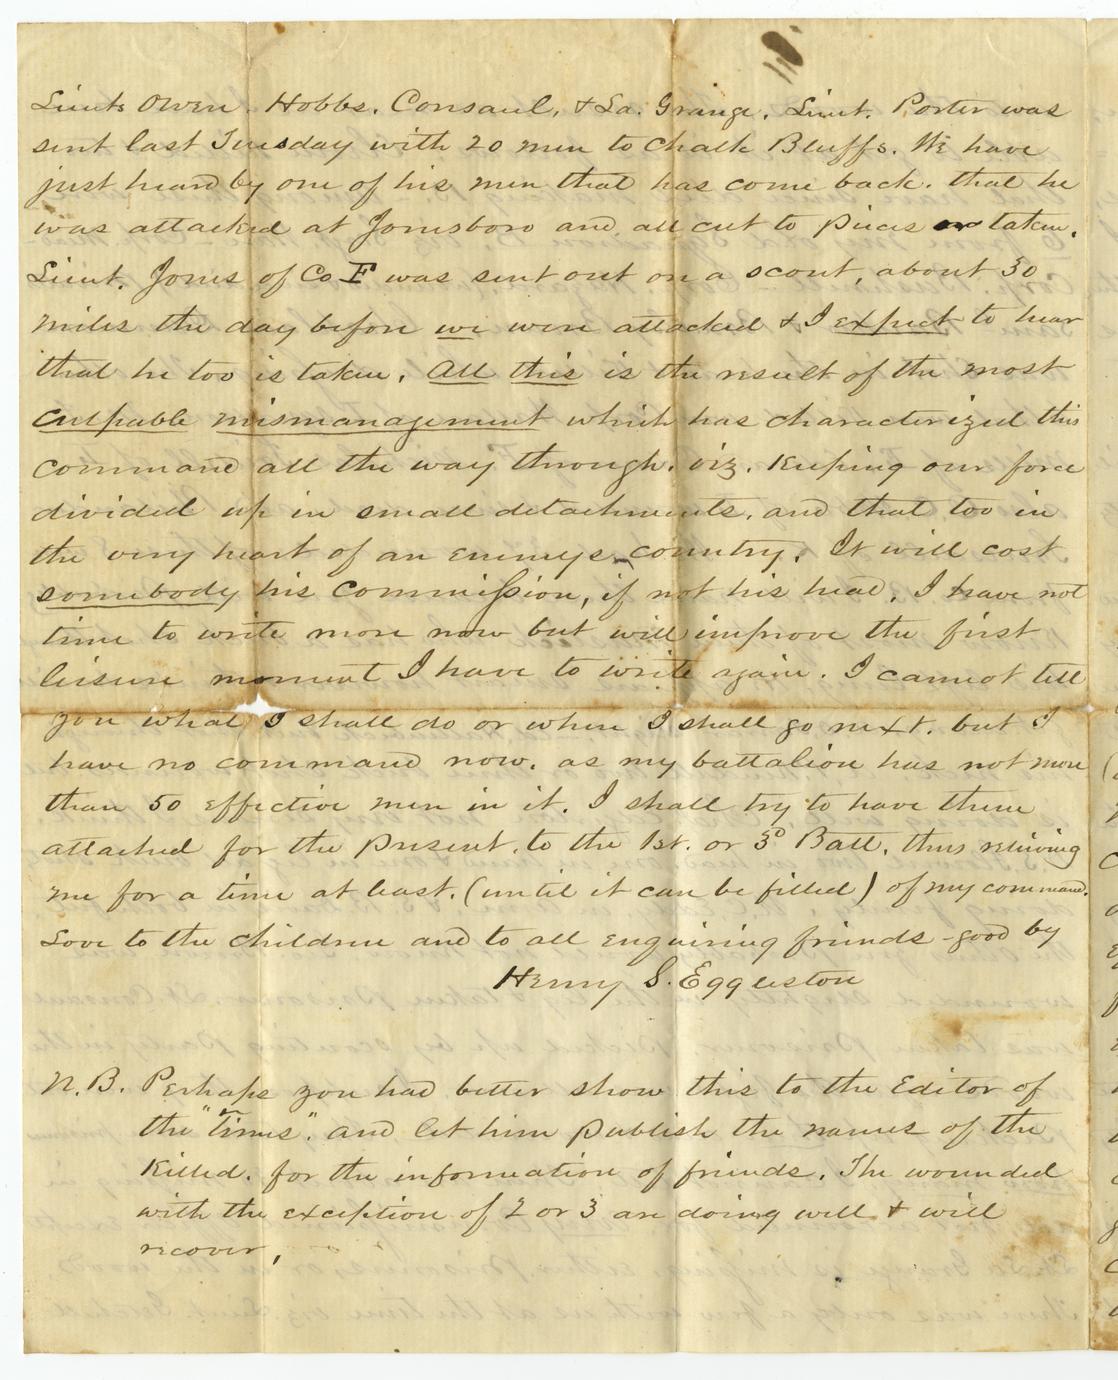 Lieuts Owen. Hobbs. Consaul, & La. Grange. Lieut. Porter was
sent last Tuesday with 20 men to Chalk Bluffs. We have
just heard by one of his men that has come back. that he
was attacked at Jonesboro and all cut to pieces or taken.
Lieut. Jones of Co F was sent out on a scout, about 30
miles the day before we were attacked & I expect to hear
that he too is taken. All this is the result of the most
culpable mismanagement which has characterized this
command all the way through. viz. Keeping our force
divided up in small detachments, and that too in
the very heart of an enemeys country. It will cost
somebody his commission, if not his head. I have not
time to write more now but will improve the first
leisure moment I have to write again. I cannot tell
you what I shall do or where I shall go next. but I
have no command now. as my battalion has not more
than 50 effective men in it. I shall try to have them
attached for the present. to the 1st. or 3d Batt. thus relieving
me for a time at least. (until it can be filled) of my command.
Love to the children and to all enquiring friends - good by
Henry S. Eggleston
N.B. Perhaps you had better show this to the Editor of
the "Times". and let him publish the names of the
Killed. for the information of friends. The wounded
with the exception of 2 or 3 are doing well & will
recover,